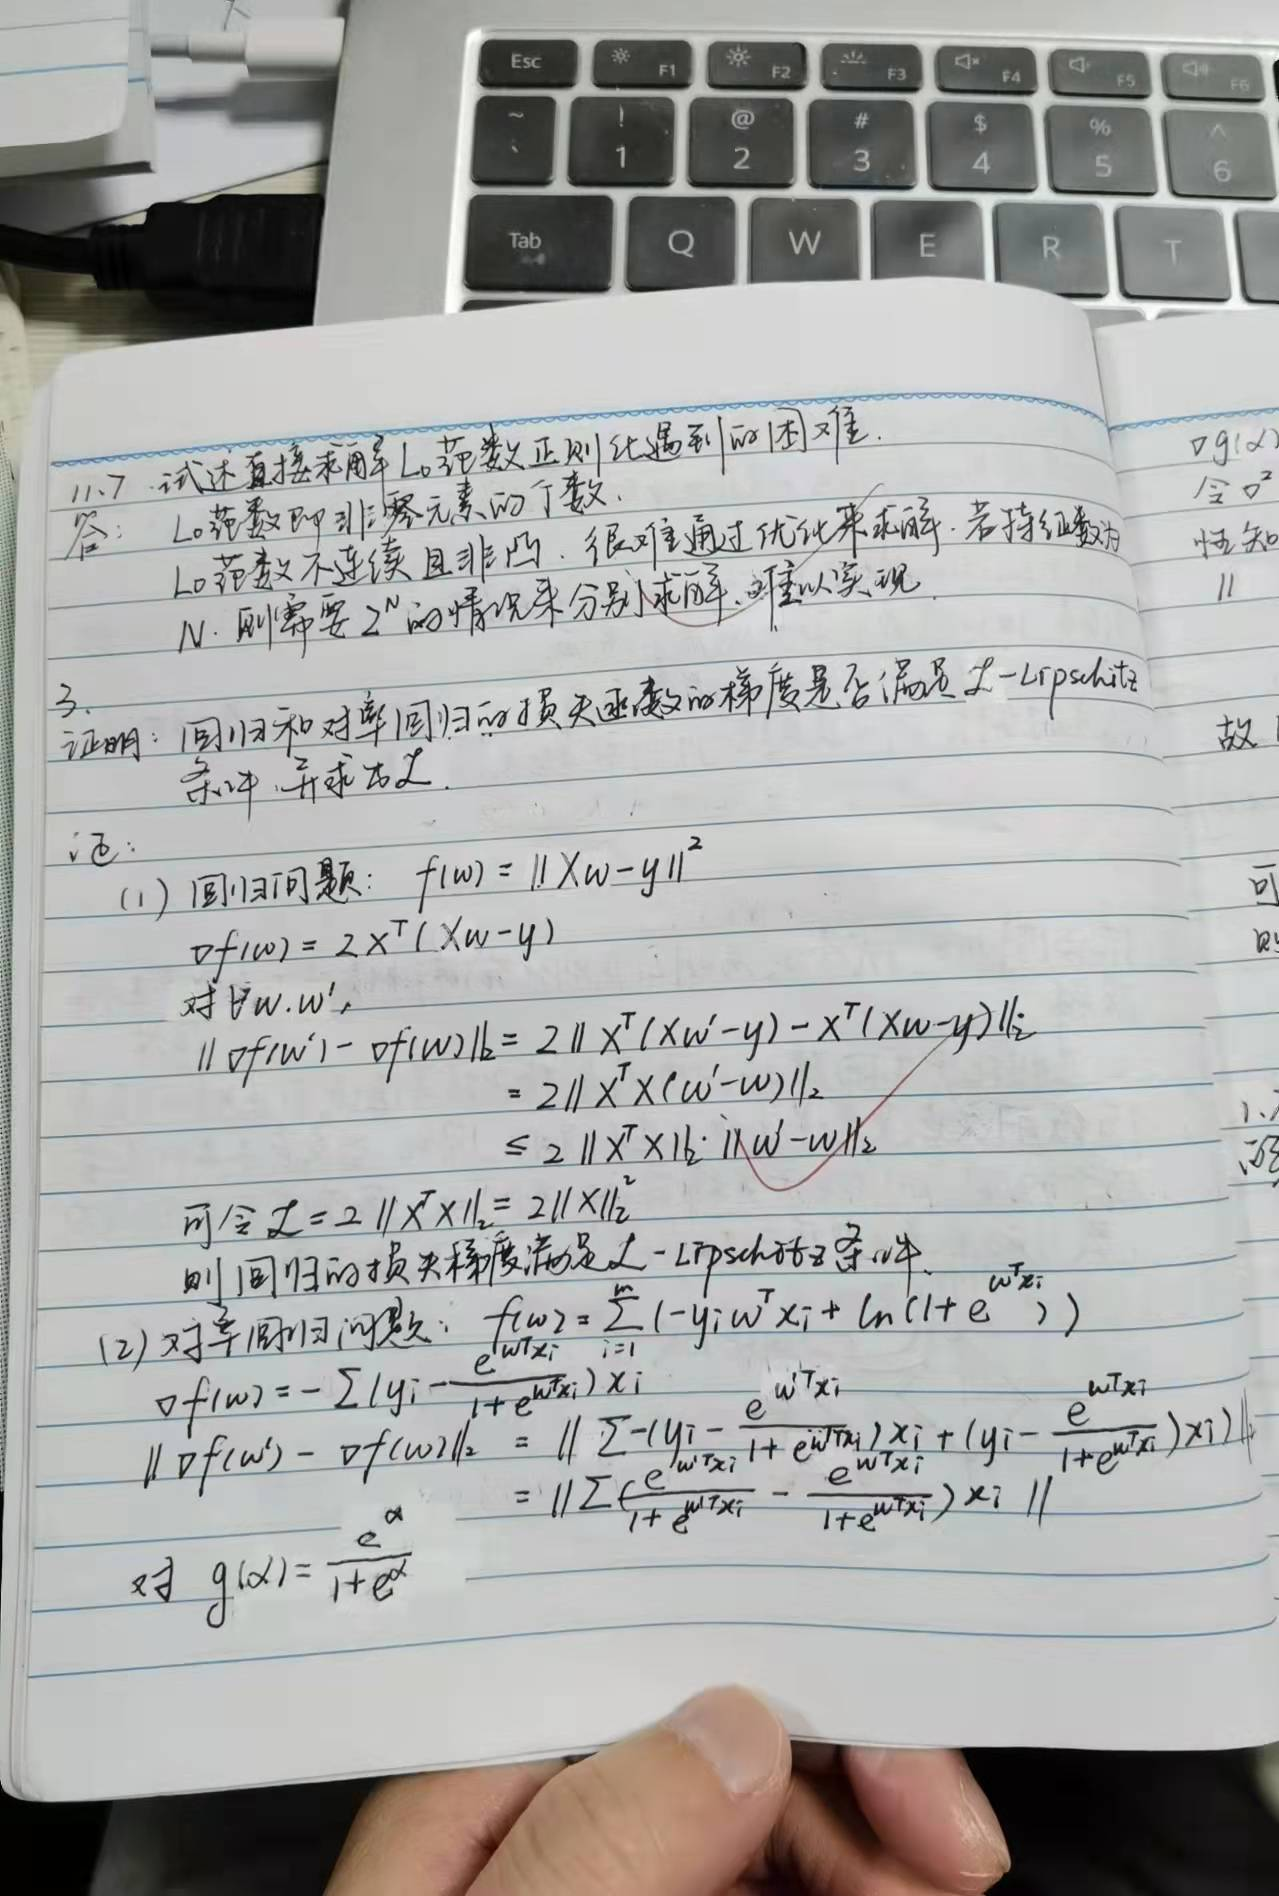 Esc F1 F2 F3 F4 F5 F6
~ ` ! 1 @ 2 # 3 $ 4 % 5 ^ 6
Tab Q W E R T
11.7 试述直接求解L₀范数正则化遇到的困难.
答: L₀范数即非零元素的个数.
L₀范数不连续且非凸. 很难通过优化来求解. 若特征数为
N. 则需要2^N的情况来分别求解. 难以实现.
3.
证明: 回归和对率回归的损失函数的梯度是否满足L-Lipschitz
条件, 并求出L.
证:
(1) 回归问题: f(w) = ||Xw-y||²
∇f(w) = 2X^T(Xw-y)
对∀w.w',
||∇f(w') - ∇f(w)||₂ = 2||X^T(Xw'-y) - X^T(Xw-y)||₂
= 2||X^T X(w'-w)||₂
≤ 2||X^T X||₂·||w'-w||₂
可令L = 2||X^T X||₂ = 2||X||₂²
则回归的损失梯度满足L-Lipschitz条件.
(2) 对率回归问题: f(w) = Σ_{i=1}^{m} (-y_i w^T x_i + ln(1+e^{w^T x_i}))
∇f(w) = -Σ(y_i - e^{w^T x_i}/(1+e^{w^T x_i})) x_i
||∇f(w') - ∇f(w)||₂ = ||Σ-(y_i - e^{w'^T x_i}/(1+e^{w'^T x_i})) x_i + (y_i - e^{w^T x_i}/(1+e^{w^T x_i}) x_i)||
= ||Σ(e^{w'^T x_i}/(1+e^{w'^T x_i}) - e^{w^T x_i}/(1+e^{w^T x_i})) x_i||
对 g(α) = e^α/(1+e^α)
∇g(α)
令∇²
性知
||
故
可
则
1.